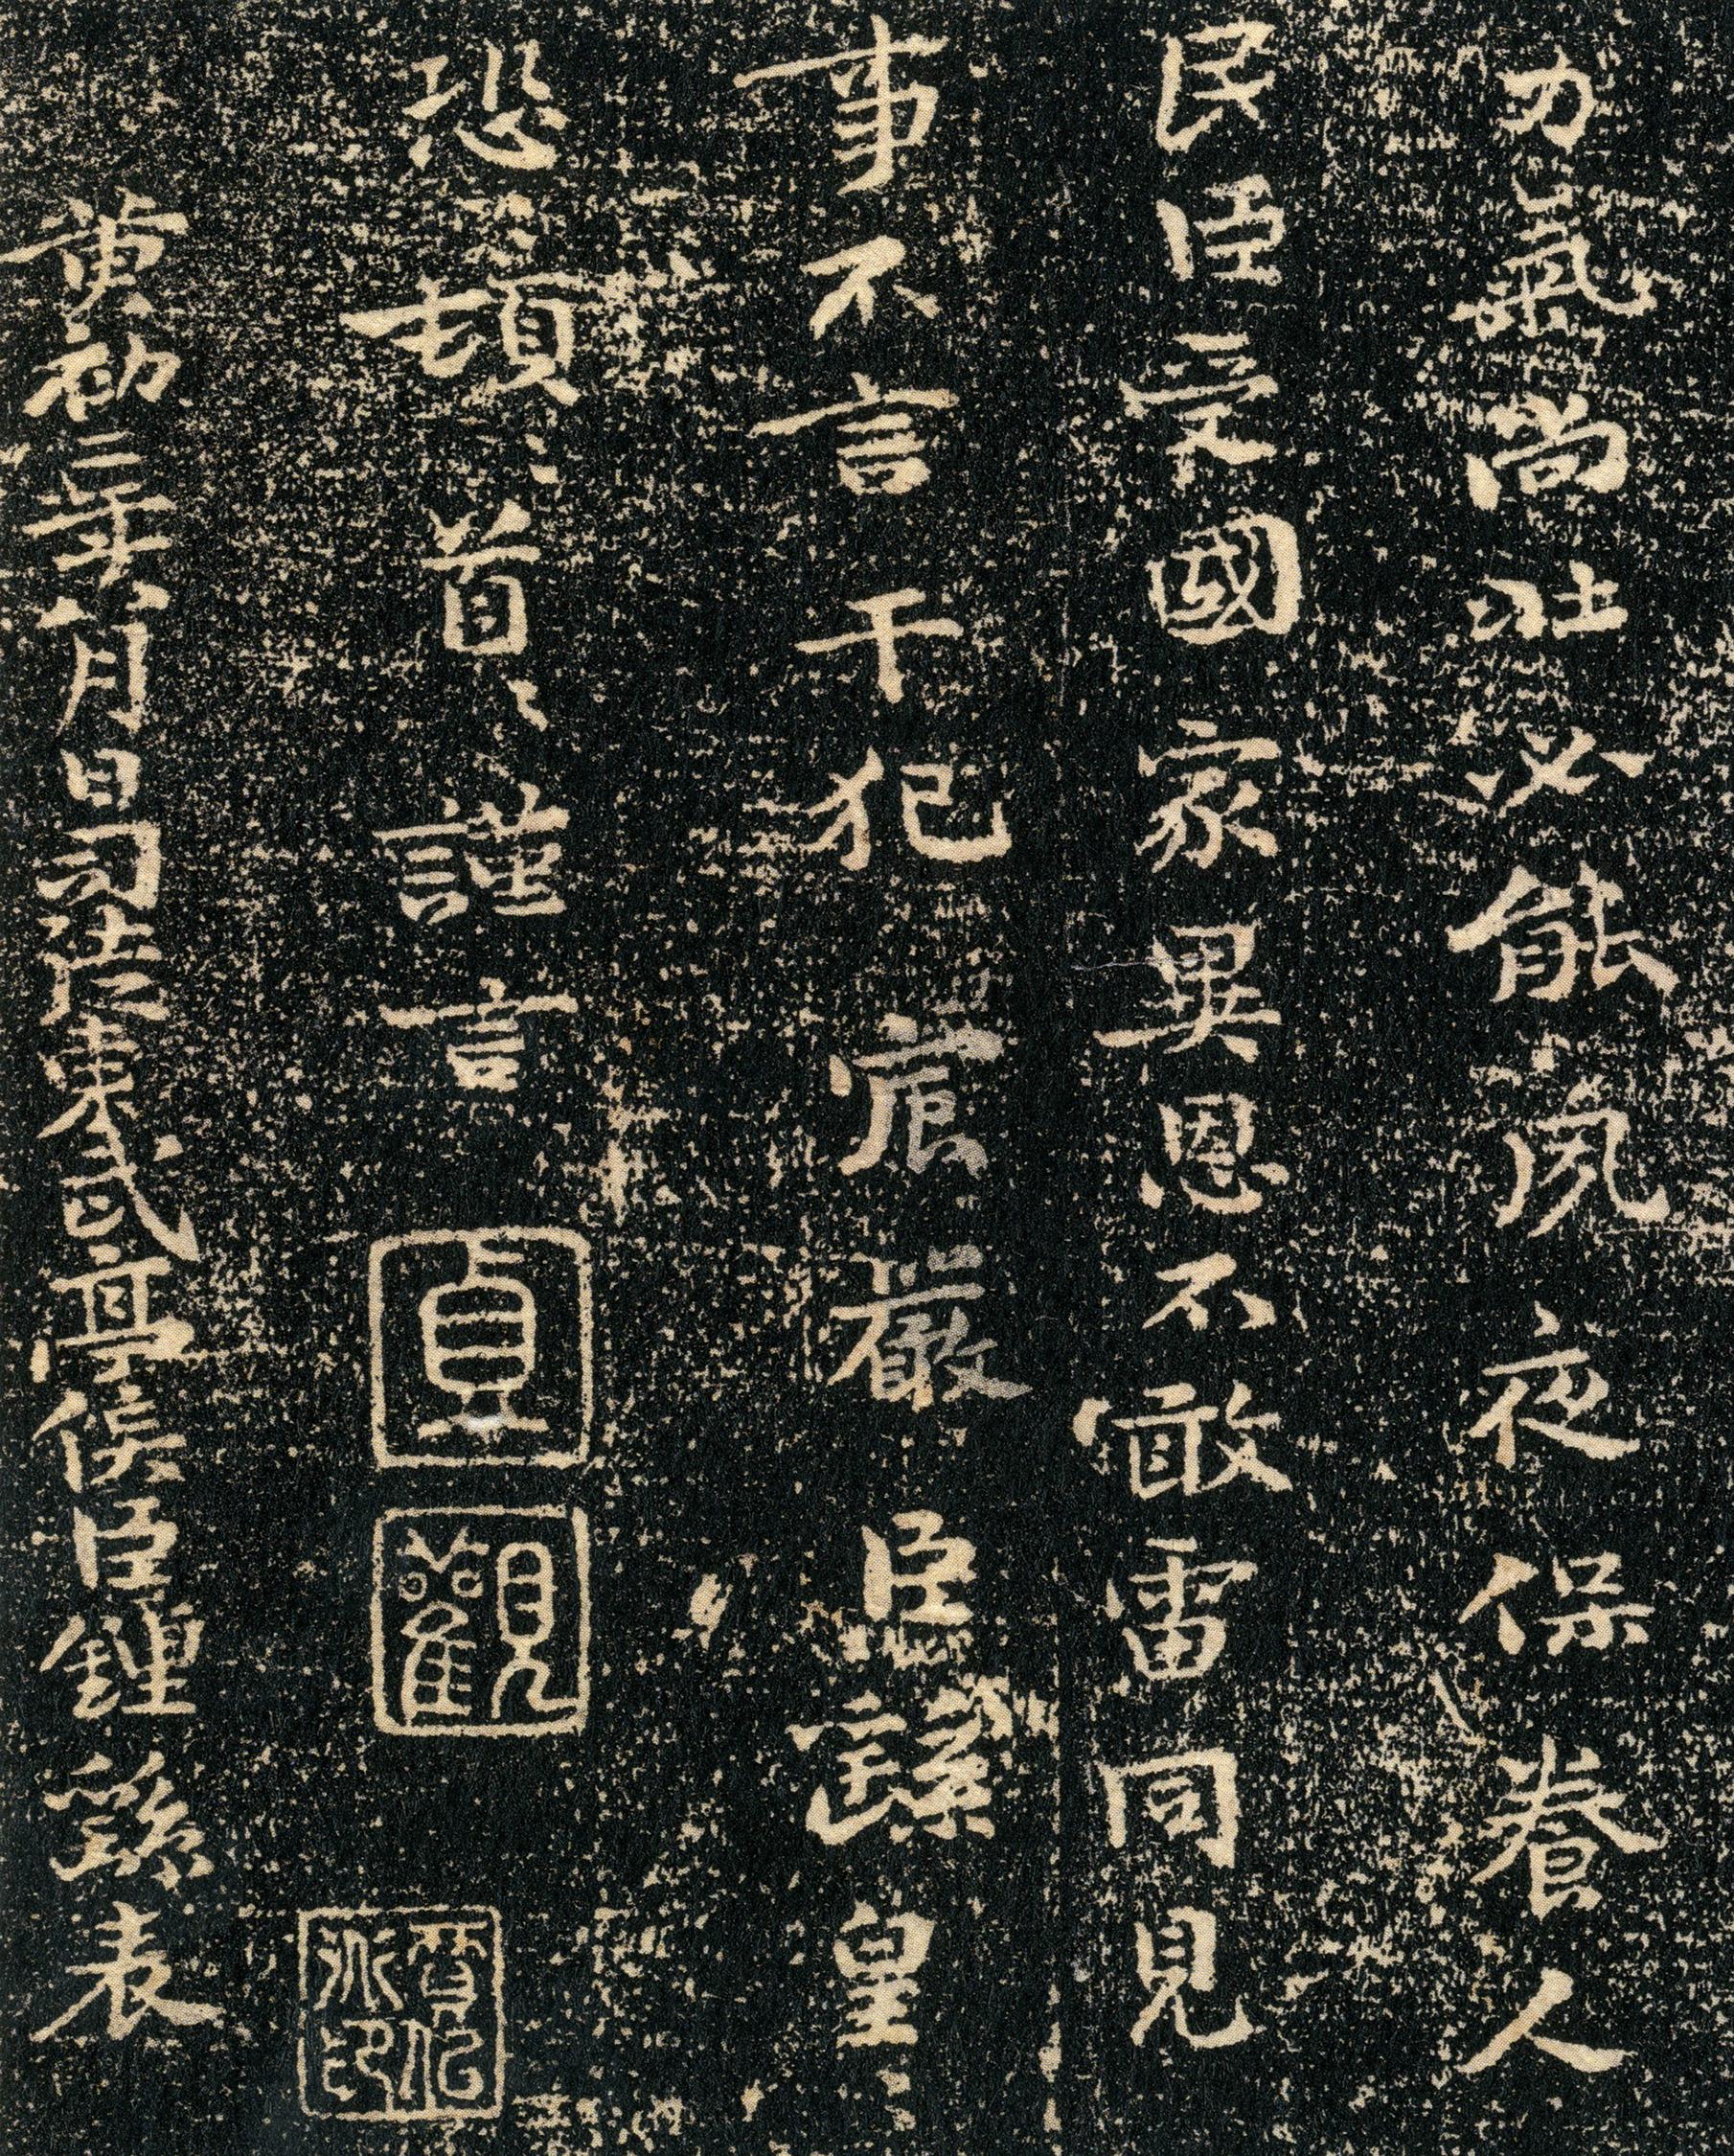 力氣尚壯必能夙夜保養人
民臣受國家異恩不敢雷同見
事不言干犯宸嚴臣繇皇〻
恐〻頓〻首〻謹言
貞
觀
賈似道印
黃初二年八月日司徒東武亭侯臣鍾繇表